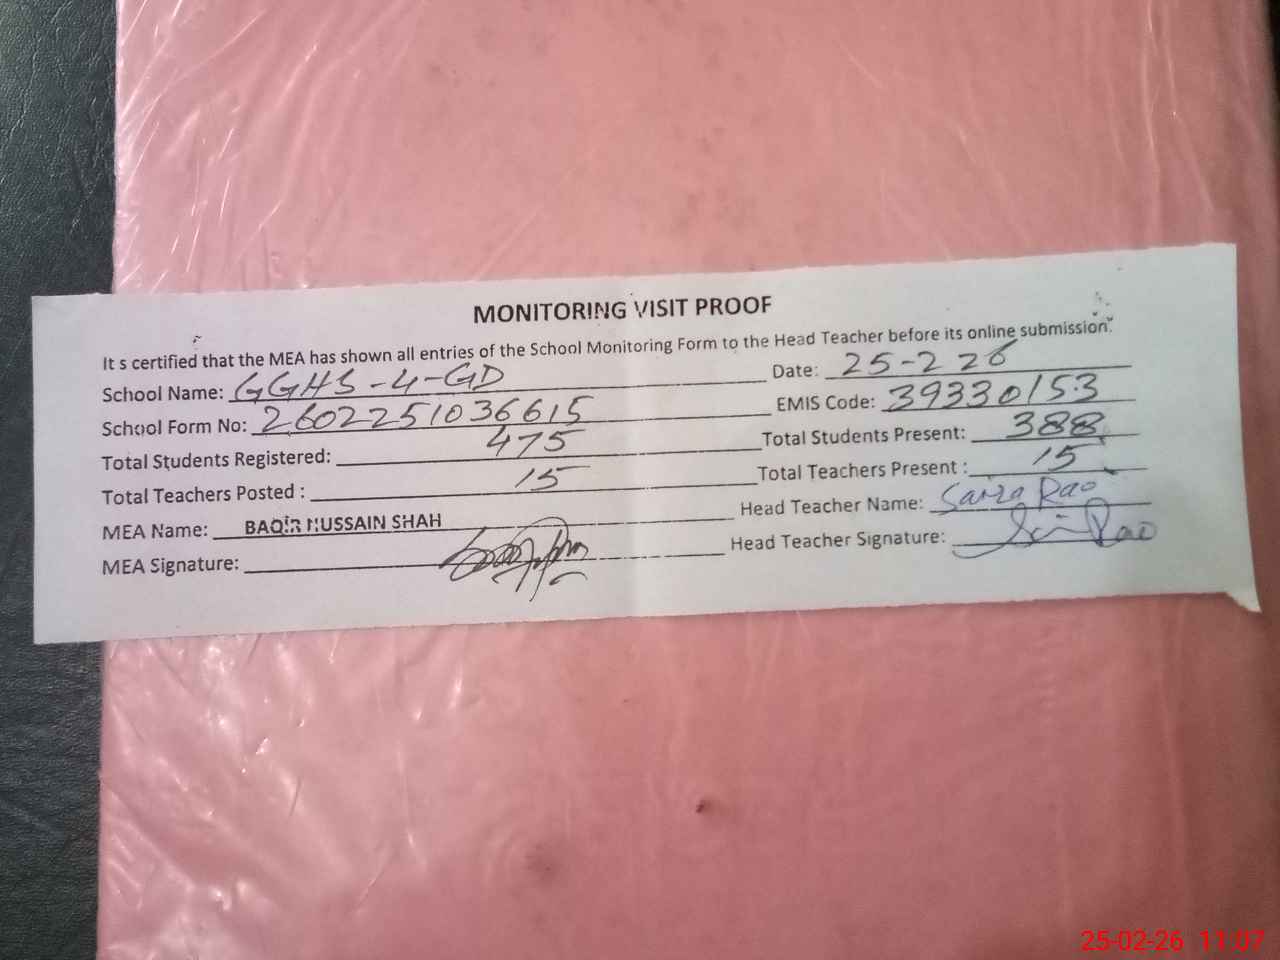 MONITORING VISIT PROOF
It s certified that the MEA has shown all entries of the School Monitoring Form to the Head Teacher before its online submission.
School Name: GGHS-4-GD Date: 25-2 26
School Form No: 2602251036615 EMIS Code: 39330153
Total Students Registered: 475 Total Students Present: 388
Total Teachers Posted : 15 Total Teachers Present : 15
MEA Name: BAQIR HUSSAIN SHAH Head Teacher Name: Saira Rao
MEA Signature: Head Teacher Signature: Rao
25-02-26 11:07